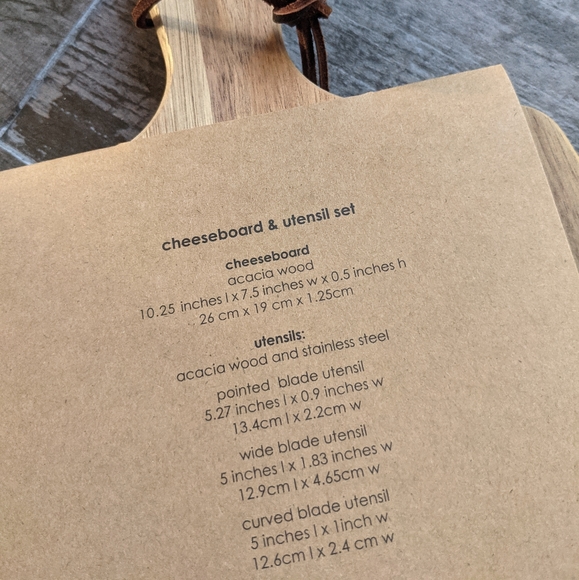 cheeseboard & utensil set
cheeseboard
acacia wood
10.25 inches l x 7.5 inches w x 0.5 inches h
26 cm x 19 cm x 1.25cm
utensils:
acacia wood and stainless steel
pointed blade utensil
5.27 inches l x 0.9 inches w
13.4cm l x 2.2cm w
wide blade utensil
5 inches l x 1.83 inches w
12.9cm l x 4.65cm w
curved blade utensil
5 inches l x 1inch w
12.6cm l x 2.4 cm w